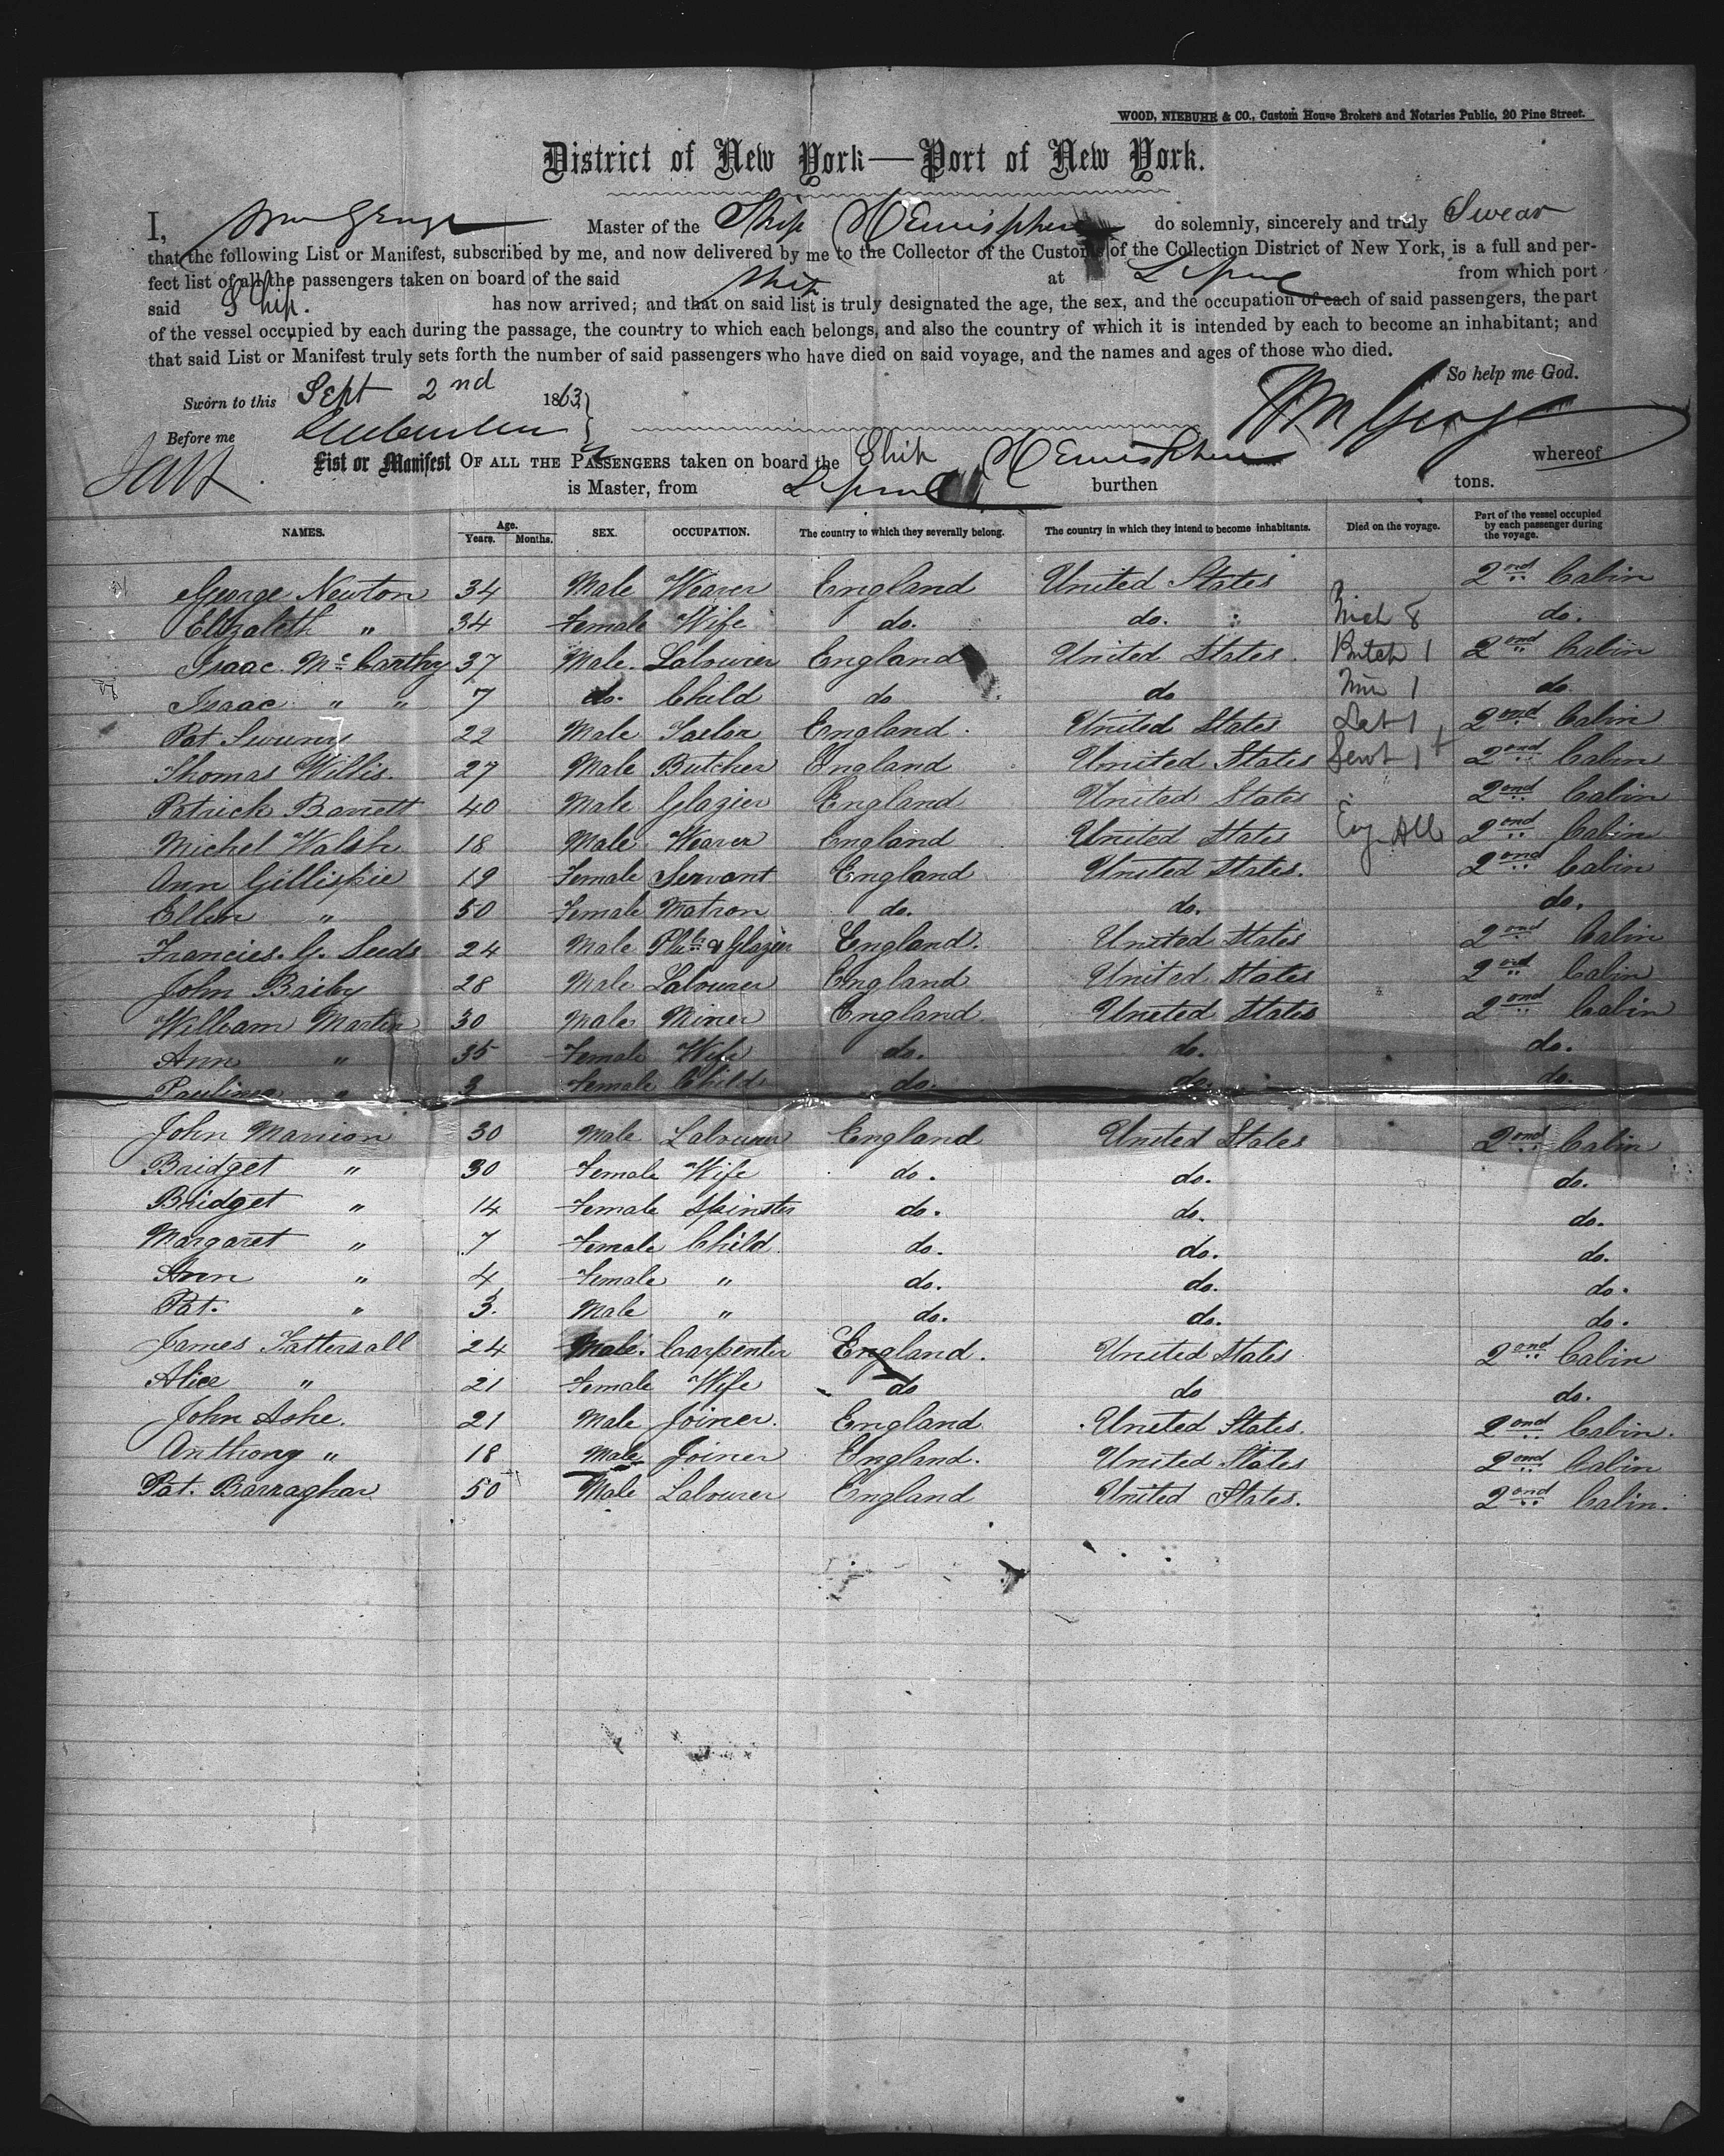 WOOD, NIEBUHR & CO., Custom House Brokers and Notaries Public, 20 Pine Street.
District of New York—Port of New York.
I, Wm George Master of the Ship Hemisphere do solemnly, sincerely and truly Swear
that the following List or Manifest, subscribed by me, and now delivered by me to the Collector of the Customs of the Collection District of New York, is a full and per-
fect list of all the passengers taken on board of the said Ship at L'pool from which port
said Ship. has now arrived; and that on said list is truly designated the age, the sex, and the occupation of each of said passengers, the part
of the vessel occupied by each during the passage, the country to which each belongs, and also the country of which it is intended by each to become an inhabitant; and
that said List or Manifest truly sets forth the number of said passengers who have died on said voyage, and the names and ages of those who died.
So help me God.
Sworn to this Sept 2nd 1863
Before me
Wm George
List or Manifest OF ALL THE PASSENGERS taken on board the Ship Hemisphere whereof
is Master, from L'pool burthen tons.
NAMES. Age. Years. Months. SEX. OCCUPATION. The country to which they severally belong. The country in which they intend to become inhabitants. Died on the voyage. Part of the vessel occupied by each passenger during the voyage.
George Newton 34 Male Weaver England United States 2nd Cabin
Elizabeth " 34 Female Wife do. do. do.
Isaac McCarthy 37 Male. Labourer England United States. 2ond Cabin
Isaac " " 7 do. Child do do do.
Pat Sweeny 22 Male Tailor England. United States 2ond Cabin
Thomas Willis. 27 Male Butcher England United States Servt 1 2ond Cabin
Patrick Barrett 40 Male Glazier England United States 2ond Cabin
Michel Walsh 18 Male Weaver England United States 2ond Cabin
Ann Gillispie 19 Female Servant England United States. 2ond Cabin
Ellen " 50 Female Matron do. do. do.
Francies. G. Seeds 24 Male Plbr & Glazier England. United States 2ond Cabin
John Bailey 28 Male Labourer England United States 2ond Cabin
William Martin 30 Male Miner England United States 2ond Cabin
Ann " 35 Female Wife do. do. do.
Pauline " 3 Female Child do. do. do.
John Marrion 30 Male Labourer England United States 2ond Cabin
Bridget " 30 Female Wife do. do. do.
Bridget " 14 Female Spinster do. do. do.
Margaret " 7 Female Child. do. do. do.
Ann " 4 Female " do. do. do.
Pat. " 3. Male " do. do. do.
James Tattersall 24 Male. Carpenter England. United States 2ond Cabin
Alice " 21 Female Wife do do do.
John Ashe. 21 Male Joiner. England. United States. 2ond Cabin.
Anthony " 18 Male Joiner England. United States 2ond Cabin
Pat. Barraghar 50 Male Labourer England United States. 2ond Cabin.